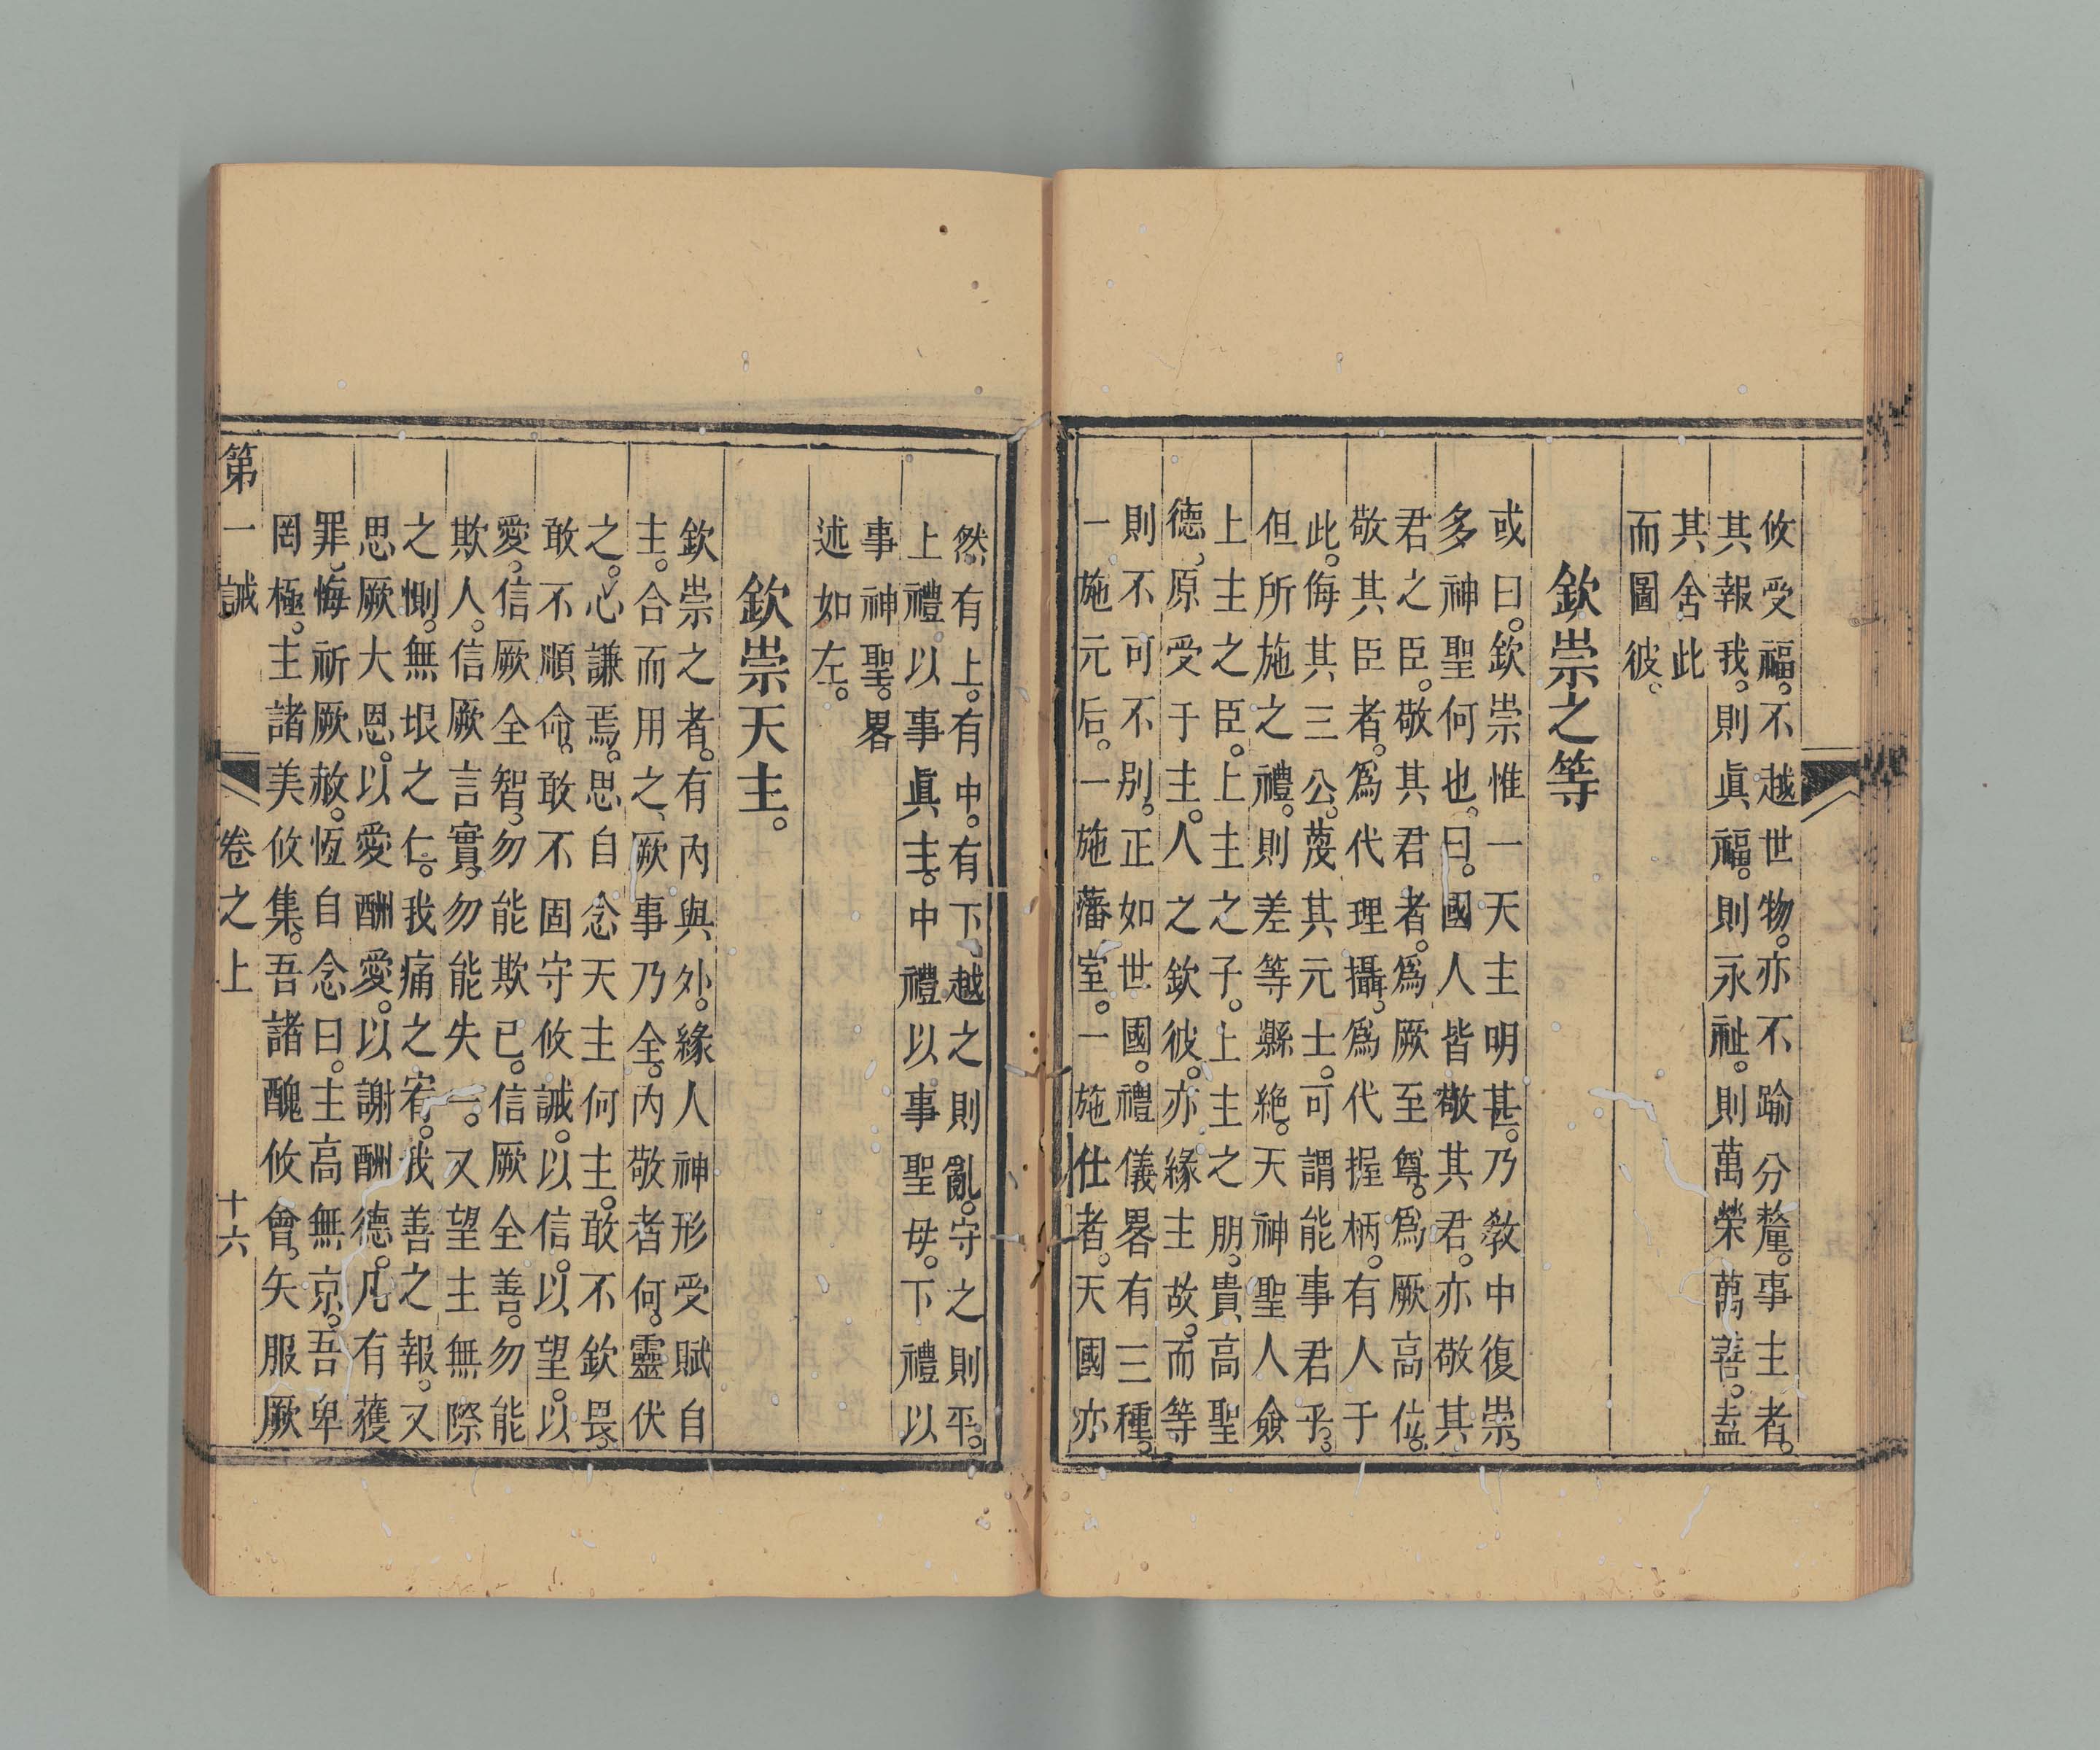 攸受福。不越世物。亦不踰分釐。事主者。
其報我。則眞福。則永祉。則萬榮萬善。盍
其舍此
而圖彼。
欽崇之等
或曰。欽崇惟一天主明甚。乃敎中復崇。
多神聖何也。曰。國人皆敬其君。亦敬其
君之臣。敬其君者。爲厥至尊。爲厥高位。
敬其臣者。爲代理攝。爲代握柄。有人于
此。侮其三公。蔑其元士。可謂能事君乎。
但所施之禮。則差等縣絶。天神聖人僉
上主之臣。上主之子。上主之朋。貴高聖
德。原受于主。人之欽彼。亦緣主故。而等
則不可不別。正如世國。禮儀畧有三種。
一施元后。一施藩室。一施仕者。天國亦
然有上。有中。有下。越之則亂。守之則平。
上禮。以事眞主。中禮以事聖母。下禮以
事神聖。畧
述如左。
欽崇天主。
欽崇之者。有內與外。緣人神形受賦自
主。合而用之、厥事乃全。內敬者何。靈伏
之。心謙焉。思自念天主何主。敢不欽畏。
敢不順命。敢不固守攸誡。以信。以望。以
愛。信厥全智。勿能欺已。信厥全善。勿能
欺人。信厥言實。勿能失一。又望主無際
之惻。無垠之仁。我痛之宥。我善之報。又
思厥大恩。以愛酬愛。以謝酬德。凡有蔓
罪。悔祈厥赦。恆自念曰。主高無京。吾卑
罔極。主諸美攸集。吾諸醜攸會。矢服厥
第一誡 卷之上 十六